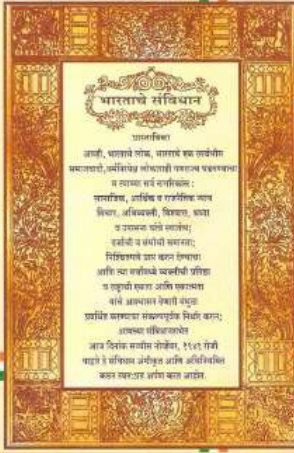 भारताचे संविधान
प्रास्ताविका
आम्ही, भारताचे लोक, भारताचे एक सार्वभौम
समाजवादी धर्मनिरपेक्ष लोकशाही गणराज्य घडविण्याचा
व त्याच्या सर्व नागरिकांस :
सामाजिक, आर्थिक व राजनैतिक न्याय
विचार, अभिव्यक्ती, विश्वास, श्रद्धा
व उपासना यांचे स्वातंत्र्य;
दर्जाची व संधीची समानता;
निश्चितपणे प्राप्त करून देण्याचा
आणि त्या सर्वांमध्ये व्यक्तीची प्रतिष्ठा
व राष्ट्राची एकता आणि एकात्मता
यांचे आश्वासन देणारी बंधुता
प्रवर्धित करण्याचा संकल्पपूर्वक निर्धार करून;
आमच्या संविधानसभेत
आज दिनांक सव्वीस नोव्हेंबर, १९४९ रोजी
याद्वारे हे संविधान अंगीकृत आणि अधिनियमित
करून स्वतःप्रत अर्पण करत आहोत.